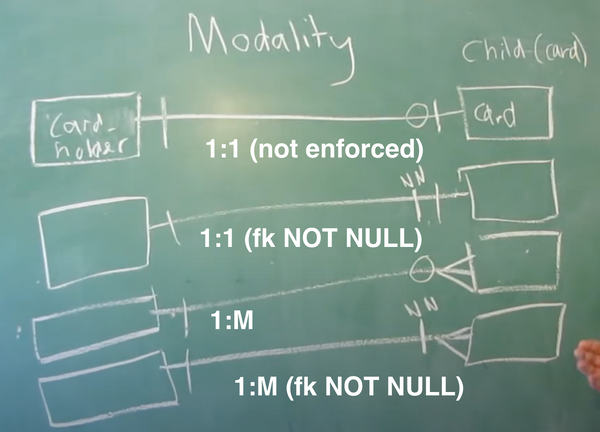 Modality
Child (card)
Card-
holder
card
1:1 (not enforced)
NN
1:1 (fk NOT NULL)
1:M
NN
1:M (fk NOT NULL)